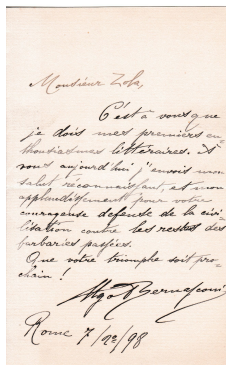 Monsieur Zola,
C'est à vous que
je dois mes premiers en-
thousiasmes littéraires. A
vous aujourd'hui j'envois mon
salut réconnaissant, et mon
applaudissement pour votre
courageuse défense de la civi-
lisation contre les restes des
barbaries passées.
Que votre triumphe soit pro-
chain!
Ugo Bernasconi
Rome 7/22/98